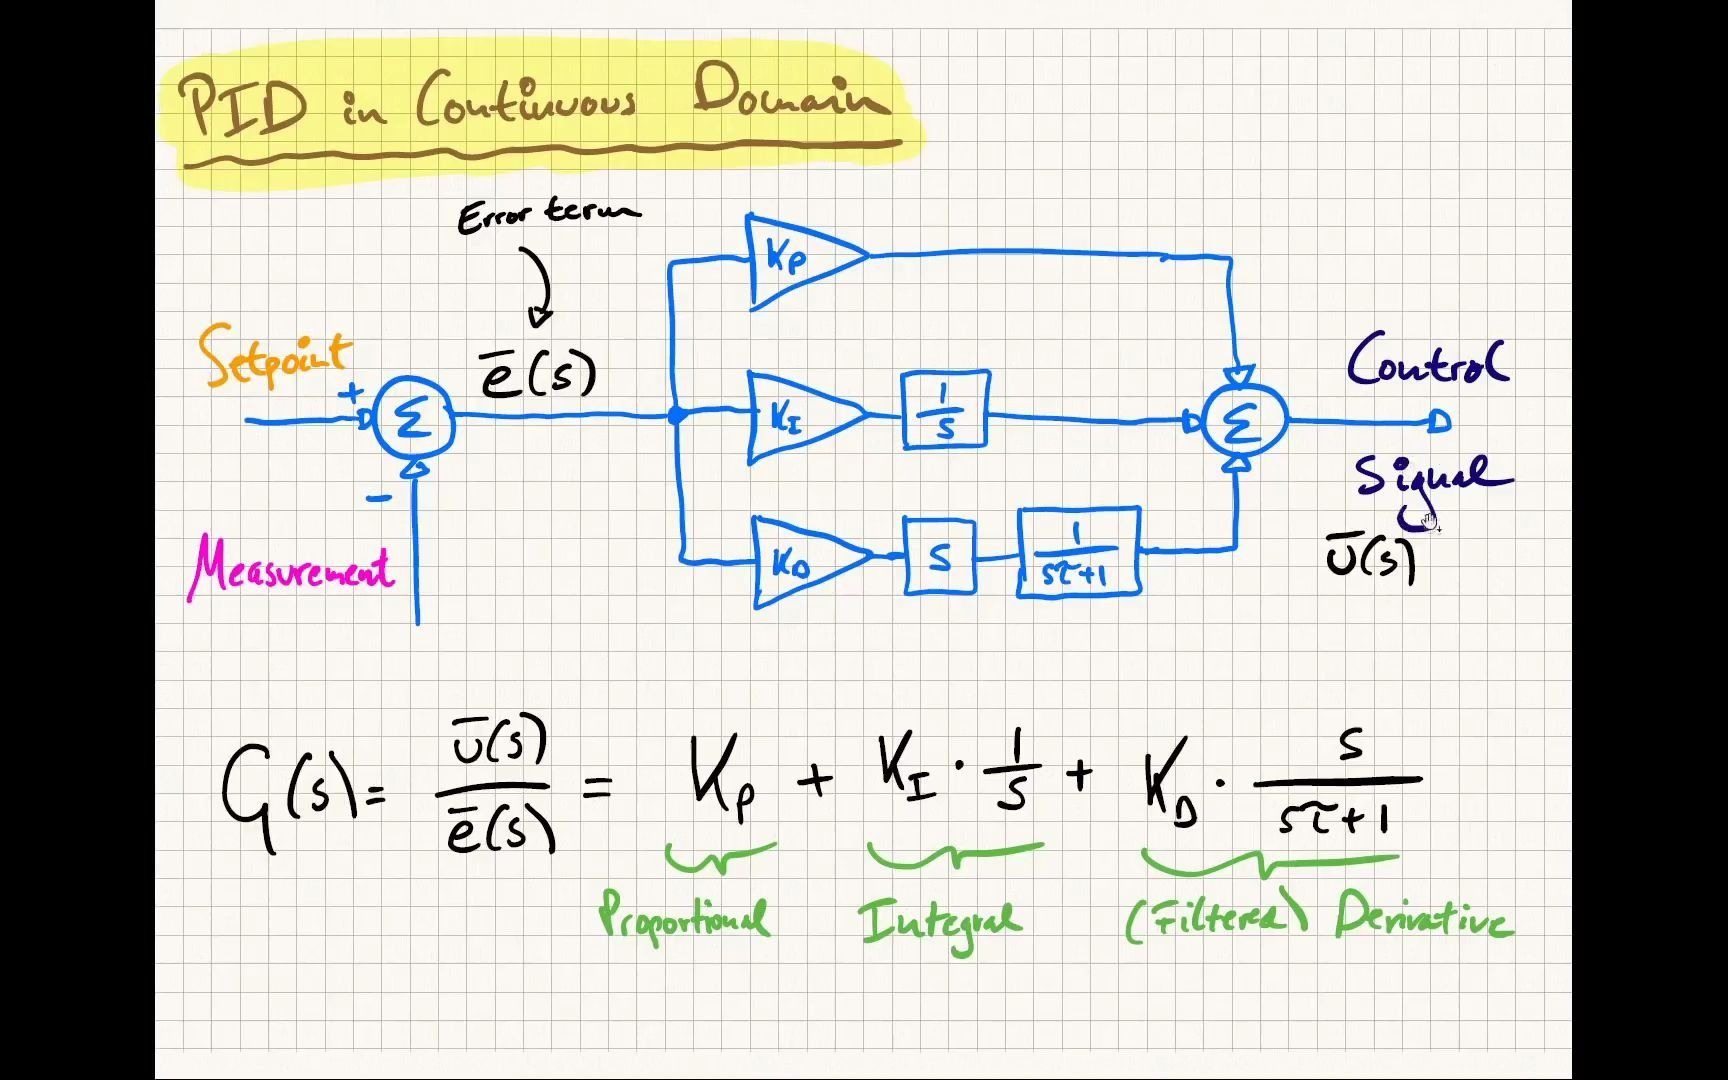 PID in Continuous Domain
Error term
ē(s)
Setpoint
+
Σ
−
Measurement
K_P
K_I
1/s
K_D
s
1/(sτ+1)
Σ
Control
Signal
ū(s)
G(s) = ū(s)/ē(s) = K_P + K_I · 1/s + K_D · s/(sτ+1)
Proportional Integral (Filtered) Derivative